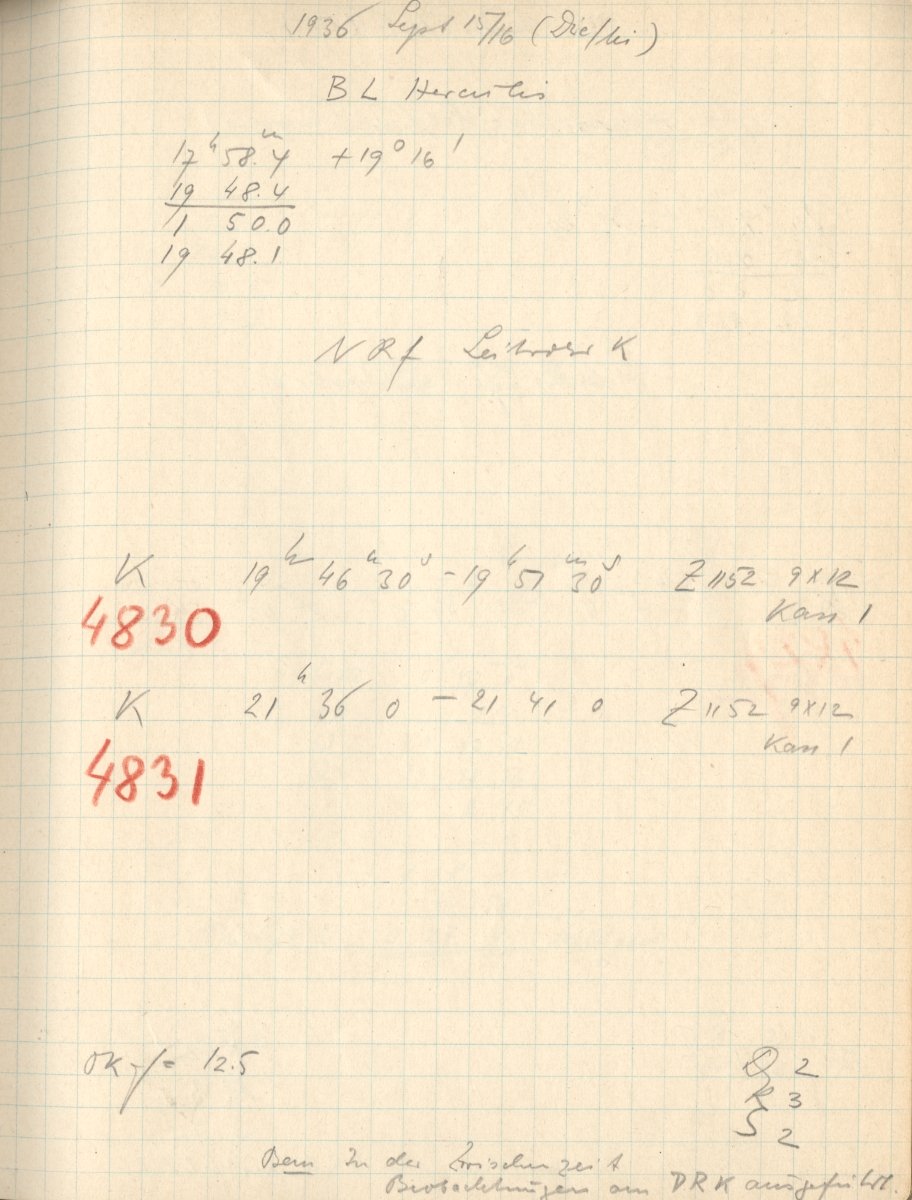 1936 Sept 15/16 (Die/Mi)
BL Herculis
17h 58.m4 +19° 16'
19 48.4
1 50.0
19 48.1
NRf Leitrohr K
K 19h 46m 30s - 19h 51m 30s Z 1152 9x12
Kass 1
4830
K 21h 36 0 - 21 41 0 Z 1152 9x12
Kass 1
4831
OK 12.5
2
R 3
S 2
Bem In der Zwischenzeit
Beobachtungen am DRK ausgeführt.